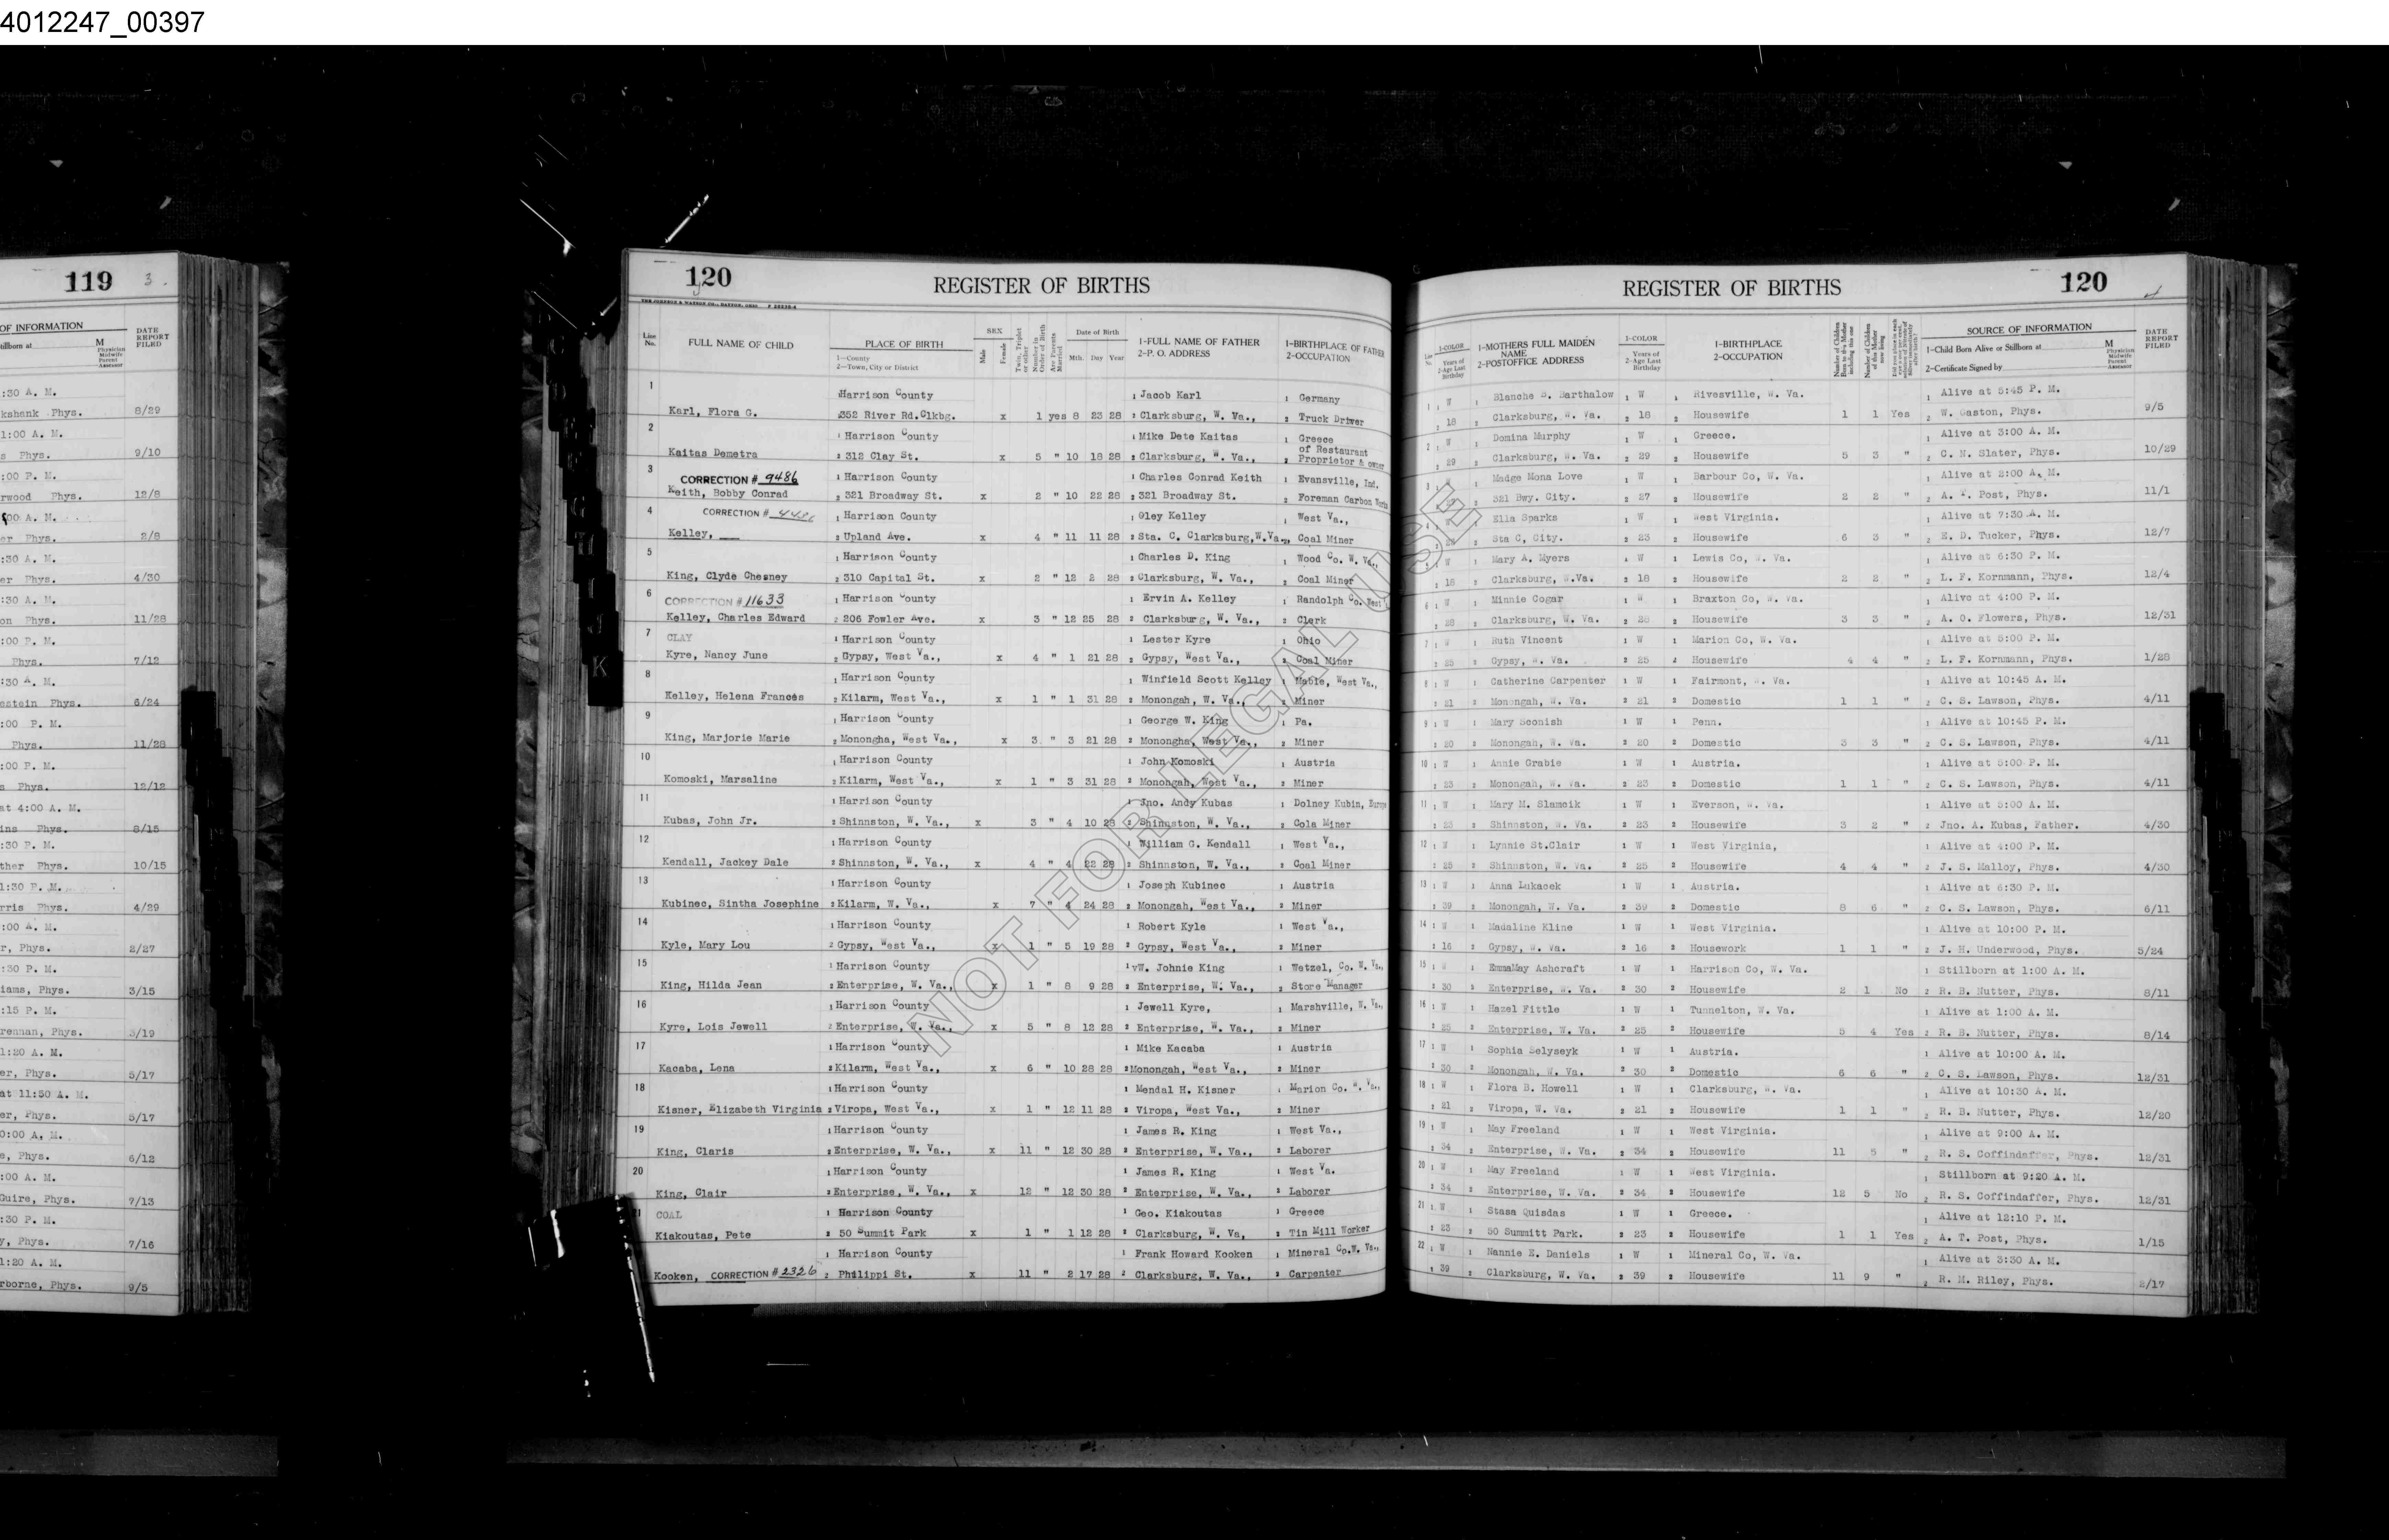 4012247_00397
119 3
OF INFORMATION
stillborn at M
Physician
Midwife
Parent
Assessor
DATE
REPORT
FILED
:30 A. M.
kshank Phys. 8/29
1:00 A. M.
s Phys. 9/10
:00 P. M.
rwood Phys. 12/8
:00 A. M.
er Phys. 2/8
:30 A. M.
er Phys. 4/30
:30 A. M.
on Phys. 11/28
:00 P. M.
Phys. 7/12
:30 A. M.
estein Phys. 6/24
:00 P. M.
Phys. 11/28
:00 P. M.
s Phys. 12/12
at 4:00 A. M.
ins Phys. 8/15
:30 P. M.
ther Phys. 10/15
1:30 P. M.
rris Phys. 4/29
:00 A. M.
r, Phys. 2/27
:30 P. M.
iams, Phys. 3/15
:15 P. M.
rennan, Phys. 3/19
1:20 A. M.
er, Phys. 5/17
at 11:50 A. M.
er, Phys. 5/17
0:00 A. M.
e, Phys. 6/12
:00 A. M.
Guire, Phys. 7/13
:30 P. M.
y, Phys. 7/16
1:20 A. M.
rborne, Phys. 9/5
J
K
120 REGISTER OF BIRTHS
THE JOHNSON & WATSON CO., DAYTON, OHIO
Line No. FULL NAME OF CHILD PLACE OF BIRTH 1—County 2—Town, City or District SEX Male Female Twin, Triplet or other Number in Order of Birth Are Parents Married Date of Birth Mth. Day Year 1-FULL NAME OF FATHER 2-P. O. ADDRESS 1-BIRTHPLACE OF FATHER 2-OCCUPATION
1 1 Harrison County 1 Jacob Karl 1 Germany
Karl, Flora G. 2 352 River Rd.Clkbg. x 1 yes 8 23 28 2 Clarksburg, W. Va., 2 Truck Driver
2 1 Harrison County 1 Mike Dete Kaitas 1 Greece
of Restaurant
Kaitas Demetra 2 312 Clay St. x 5 " 10 18 28 2 Clarksburg, W. Va., 2 Proprietor & owner
3 CORRECTION # 9486 1 Harrison County 1 Charles Conrad Keith 1 Evansville, Ind.
Keith, Bobby Conrad 2 321 Broadway St. x 2 " 10 22 28 2 321 Broadway St. 2 Foreman Carbon Works
4 CORRECTION # 1 Harrison County 1 Oley Kelley 1 West Va.,
Kelley, 2 Upland Ave. x 4 " 11 11 28 2 Sta. C. Clarksburg,W.Va., 2 Coal Miner
5 1 Harrison County 1 Charles D. King 1 Wood Co. W. Va.,
King, Clyde Chesney 2 310 Capital St. x 2 " 12 2 28 2 Clarksburg, W. Va., 2 Coal Miner
6 CORRECTION # 11633 1 Harrison County 1 Ervin A. Kelley 1 Randolph Co. West
Kelley, Charles Edward 2 206 Fowler Ave. x 3 " 12 25 28 2 Clarksburg, W. Va., 2 Clerk
7 CLAY 1 Harrison County 1 Lester Kyre 1 Ohio
Kyre, Nancy June 2 Gypsy, West Va., x 4 " 1 21 28 2 Gypsy, West Va., 2 Coal Miner
8 1 Harrison County 1 Winfield Scott Kelley 1 Mable, West Va.,
Kelley, Helena Frances 2 Kilarm, West Va., x 1 " 1 31 28 2 Monongah, W. Va., 2 Miner
9 1 Harrison County 1 George W. King 1 Pa.
King, Marjorie Marie 2 Monongha, West Va., x 3 " 3 21 28 2 Monongha, West Va., 2 Miner
10 1 Harrison County 1 John Komoski 1 Austria
Komoski, Marsaline 2 Kilarm, West Va., x 1 " 3 31 28 2 Monongah, West Va., 2 Miner
11 1 Harrison County 1 Jno. Andy Kubas 1 Dolney Kubin, Europe
Kubas, John Jr. 2 Shinnston, W. Va., x 3 " 4 10 28 2 Shinnston, W. Va., 2 Cola Miner
12 1 Harrison County 1 William G. Kendall 1 West Va.,
Kendall, Jackey Dale 2 Shinnston, W. Va., x 4 " 4 22 28 2 Shinnston, W. Va., 2 Coal Miner
13 1 Harrison County 1 Joseph Kubinec 1 Austria
Kubinec, Sintha Josephine 2 Kilarm, W. Va., x 7 " 4 24 28 2 Monongah, West Va., 2 Miner
14 1 Harrison County 1 Robert Kyle 1 West Va.,
Kyle, Mary Lou 2 Gypsy, West Va., x 1 " 5 19 28 2 Gypsy, West Va., 2 Miner
15 1 Harrison County 1 vW. Johnie King 1 Wetzel, Co. W. Va.,
King, Hilda Jean 2 Enterprise, W. Va., x 1 " 8 9 28 2 Enterprise, W. Va., 2 Store Manager
16 1 Harrison County 1 Jewell Kyre, 1 Marshville, W. Va.,
Kyre, Lois Jewell 2 Enterprise, W. Va., x 5 " 8 12 28 2 Enterprise, W. Va., 2 Miner
17 1 Harrison County 1 Mike Kacaba 1 Austria
Kacaba, Lena 2 Kilarm, West Va., x 6 " 10 28 28 2 Monongah, West Va., 2 Miner
18 1 Harrison County 1 Mendal H. Kisner 1 Marion Co. W. Va.,
Kisner, Elizabeth Virginia 2 Viropa, West Va., x 1 " 12 11 28 2 Viropa, West Va., 2 Miner
19 1 Harrison County 1 James R. King 1 West Va.,
King, Claris 2 Enterprise, W. Va., x 11 " 12 30 28 2 Enterprise, W. Va., 2 Laborer
20 1 Harrison County 1 James R. King 1 West Va.
King, Clair 2 Enterprise, W. Va., x 12 " 12 30 28 2 Enterprise, W. Va., 2 Laborer
21 COAL 1 Harrison County 1 Geo. Kiakoutas 1 Greece
Kiakoutas, Pete 2 50 Summit Park x 1 " 1 12 28 2 Clarksburg, W. Va, 2 Tin Mill Worker
1 Harrison County 1 Frank Howard Kooken 1 Mineral Co.W. Va.,
Kooken, CORRECTION # 2326 2 Philippi St. x 11 " 2 17 28 2 Clarksburg, W. Va., 2 Carpenter
NOT FOR LEGAL USE
REGISTER OF BIRTHS 120
Line No. 1-COLOR Years of 2-Age Last Birthday 1-MOTHERS FULL MAIDEN NAME 2-POSTOFFICE ADDRESS 1-COLOR Years of 2-Age Last Birthday 1-BIRTHPLACE 2-OCCUPATION Number of Children Born to this Mother including this one Number of Children of this Mother now living SOURCE OF INFORMATION 1-Child Born Alive or Stillborn at M 2-Certificate Signed by Physician Midwife Parent Assessor DATE REPORT FILED
1 1 W 1 Blanche B. Barthalow 1 W 1 Rivesville, W. Va. 1 Alive at 5:45 P. M.
2 18 2 Clarksburg, W. Va. 2 18 2 Housewife 1 1 Yes 2 W. Gaston, Phys. 9/5
2 1 W 1 Domina Murphy 1 W 1 Greece. 1 Alive at 3:00 A. M.
2 29 2 Clarksburg, W. Va. 2 29 2 Housewife 5 3 " 2 C. N. Slater, Phys. 10/29
3 1 W 1 Madge Mona Love 1 W 1 Barbour Co, W. Va. 1 Alive at 2:00 A. M.
2 27 2 321 Bwy. City. 2 27 2 Housewife 2 2 " 2 A. T. Post, Phys. 11/1
4 1 W 1 Ella Sparks 1 W 1 West Virginia. 1 Alive at 7:30 A. M.
2 Sta C, City. 2 23 2 Housewife 6 3 " 2 E. D. Tucker, Phys. 12/7
5 1 W 1 Mary A. Myers 1 W 1 Lewis Co, W. Va. 1 Alive at 6:30 P. M.
2 18 2 Clarksburg, W.Va. 2 18 2 Housewife 2 2 " 2 L. F. Kornmann, Phys. 12/4
6 1 W 1 Minnie Cogar 1 W 1 Braxton Co, W. Va. 1 Alive at 4:00 P. M.
2 28 2 Clarksburg, W. Va. 2 28 2 Housewife 3 3 " 2 A. O. Flowers, Phys. 12/31
7 1 W 1 Ruth Vincent 1 W 1 Marion Co, W. Va. 1 Alive at 5:00 P. M.
2 25 2 Gypsy, W. Va. 2 25 2 Housewife 4 4 " 2 L. F. Kornmann, Phys. 1/28
8 1 W 1 Catherine Carpenter 1 W 1 Fairmont, W. Va. 1 Alive at 10:45 A. M.
2 21 2 Monongah, W. Va. 2 21 2 Domestic 1 1 " 2 C. S. Lawson, Phys. 4/11
9 1 W 1 Mary Sconish 1 W 1 Penn. 1 Alive at 10:45 P. M.
2 20 2 Monongah, W. Va. 2 20 2 Domestic 3 3 " 2 C. S. Lawson, Phys. 4/11
10 1 W 1 Annie Grabie 1 W 1 Austria. 1 Alive at 5:00 P. M.
2 23 2 Monongah, W. Va. 2 23 2 Domestic 1 1 " 2 C. S. Lawson, Phys. 4/11
11 1 W 1 Mary M. Slamcik 1 W 1 Everson, W. Va. 1 Alive at 5:00 A. M.
2 23 2 Shinnston, W. Va. 2 23 2 Housewife 3 2 " 2 Jno. A. Kubas, Father. 4/30
12 1 W 1 Lynnie St.Clair 1 W 1 West Virginia, 1 Alive at 4:00 P. M.
2 25 2 Shinnston, W. Va. 2 25 2 Housewife 4 4 " 2 J. S. Malloy, Phys. 4/30
13 1 W 1 Anna Lukacek 1 W 1 Austria. 1 Alive at 6:30 P. M.
2 39 2 Monongah, W. Va. 2 39 2 Domestic 8 6 " 2 C. S. Lawson, Phys. 6/11
14 1 W 1 Madaline Kline 1 W 1 West Virginia. 1 Alive at 10:00 P. M.
2 16 2 Gypsy, W. Va. 2 16 2 Housework 1 1 " 2 J. H. Underwood, Phys. 5/24
15 1 W 1 EmmaMay Ashcraft 1 W 1 Harrison Co, W. Va. 1 Stillborn at 1:00 A. M.
2 30 2 Enterprise, W. Va. 2 30 2 Housewife 2 1 No 2 R. B. Nutter, Phys. 8/11
16 1 W 1 Hazel Fittle 1 W 1 Tunnelton, W. Va. 1 Alive at 1:00 A. M.
2 25 2 Enterprise, W. Va. 2 25 2 Housewife 5 4 Yes 2 R. B. Nutter, Phys. 8/14
17 1 W 1 Sophia Selyseyk 1 W 1 Austria. 1 Alive at 10:00 A. M.
2 30 2 Monongah, W. Va. 2 30 2 Domestic 6 6 " 2 C. S. Lawson, Phys. 12/31
18 1 W 1 Flora B. Howell 1 W 1 Clarksburg, W. Va. 1 Alive at 10:30 A. M.
2 21 2 Viropa, W. Va. 2 21 2 Housewife 1 1 " 2 R. B. Nutter, Phys. 12/20
19 1 W 1 May Freeland 1 W 1 West Virginia. 1 Alive at 9:00 A. M.
2 34 2 Enterprise, W. Va. 2 34 2 Housewife 11 5 " 2 R. S. Coffindaffer, Phys. 12/31
20 1 W 1 May Freeland 1 W 1 West Virginia. 1 Stillborn at 9:20 A. M.
2 34 2 Enterprise, W. Va. 2 34 2 Housewife 12 5 No 2 R. S. Coffindaffer, Phys. 12/31
21 1 W 1 Stasa Quisdas 1 W 1 Greece. 1 Alive at 12:10 P. M.
2 23 2 50 Summitt Park. 2 23 2 Housewife 1 1 Yes 2 A. T. Post, Phys. 1/15
22 1 W 1 Nannie E. Daniels 1 W 1 Mineral Co, W. Va. 1 Alive at 3:30 A. M.
2 39 2 Clarksburg, W. Va. 2 39 2 Housewife 11 9 " 2 R. M. Riley, Phys. 2/17